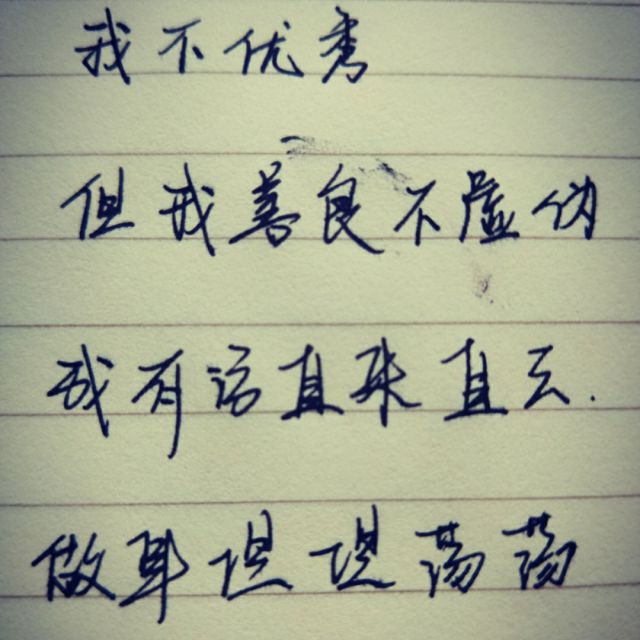 我不优秀
但我善良不虚伪
我有话直来直去.
做事坦坦荡荡